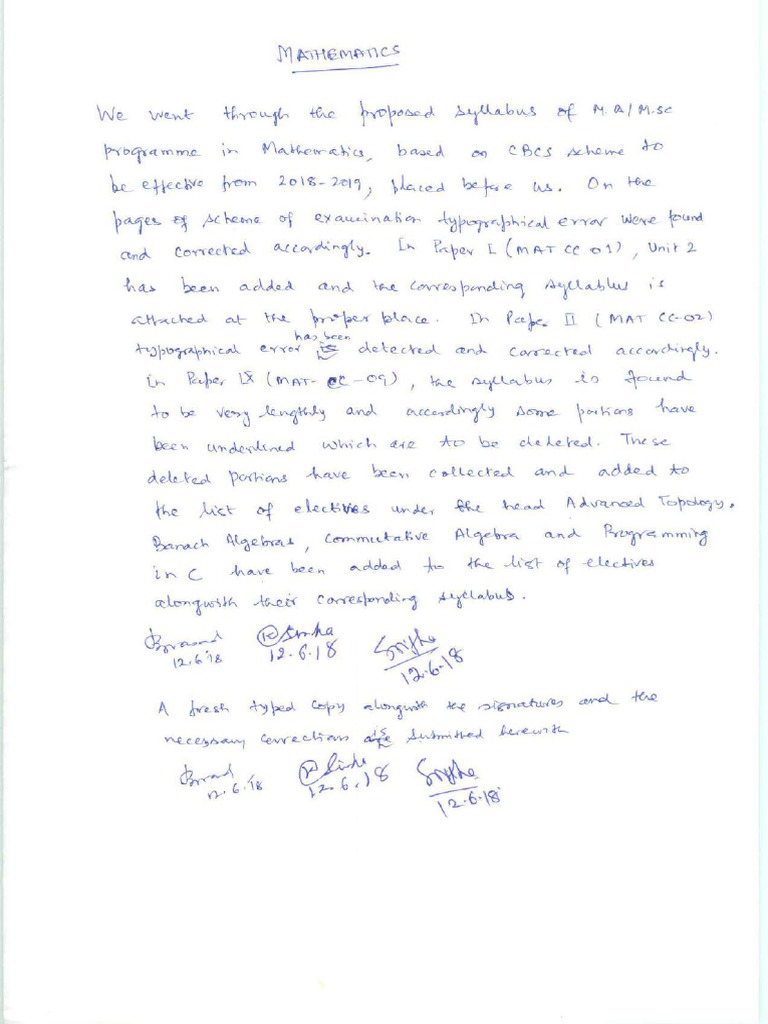 MATHEMATICS
We went through the proposed syllabus of M.A/M.Sc
programme in Mathematics, based on CBCS scheme to
be effective from 2018-2019, placed before us. On the
pages of scheme of examination typographical error were found
and corrected accordingly. In Paper I (MAT CC 01), Unit 2
has been added and the corresponding syllablus is
attached at the proper place. In Paper II (MAT CC-02)
has been
typographical error detected and corrected accordingly.
in Paper IX (MAT-CC-09), the syllabus is found
to be very lengthly and accordingly some portions have
been underlined which are to be deleted. These
deleted portions have been collected and added to
the list of electives under the head Advanced Topology.
Banach Algebras, commutative Algebra and Programming
in C have been added to the list of electives
alongwith their corresponding syllabus.
12.6.18 12.6.18 12.6.18
A fresh typed copy alongwith the signatures and the
necessary correction is submitted herewith
12.6.18 12.6.18 12.6.18